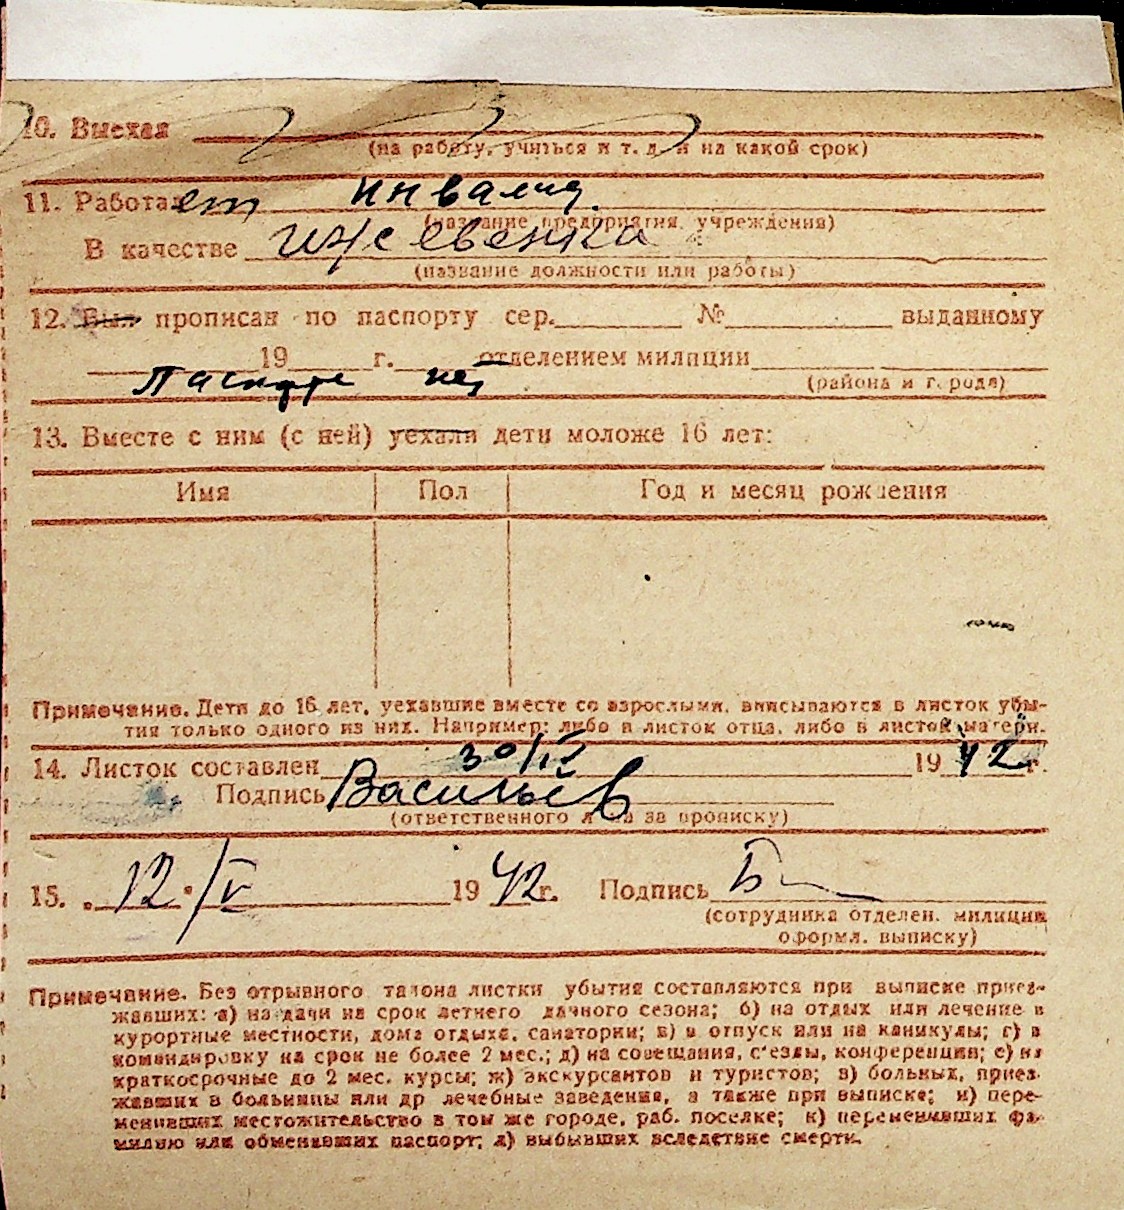 10. Выехал
(на работу, учиться и т. д. и на какой срок)
11. Работает инвалид.
(название предприятия, учреждения)
В качестве иждевенка
(название должности или работы)
12. Был прописан по паспорту сер. № выданному
19 г. отделением милиции
Паспорта нет (района и города)
13. Вместе с ним (с ней) уехали дети моложе 16 лет:
Имя Пол Год и месяц рождения
Примечание. Дети до 16 лет, уехавшие вместе со взрослыми, вписываются в листок убы-
тия только одного из них. Например: либо в листок отца, либо в листок матери.
14. Листок составлен 30/IV 1942 г.
Подпись Васильев
(ответственного лица за прописку)
15. "12"/V 1942 г. Подпись
(сотрудника отделен. милиции
оформл. выписку)
Примечание. Без отрывного талона листки убытия составляются при выписке приез-
жавших: а) на дачи на срок летнего дачного сезона; б) на отдых или лечение в
курортные местности, дома отдыха, санатории; в) в отпуск или на каникулы; г) в
командировку на срок не более 2 мес.; д) на совещания, с'езды, конференции; е) на
краткосрочные до 2 мес. курсы; ж) экскурсантов и туристов; з) больных, приез-
жавших в больницы или др лечебные заведения, а также при выписке; и) пере-
менивших местожительство в том же городе, раб. поселке; к) переменивших фа-
милию или обменявших паспорт; л) выбывших вследствие смерти.